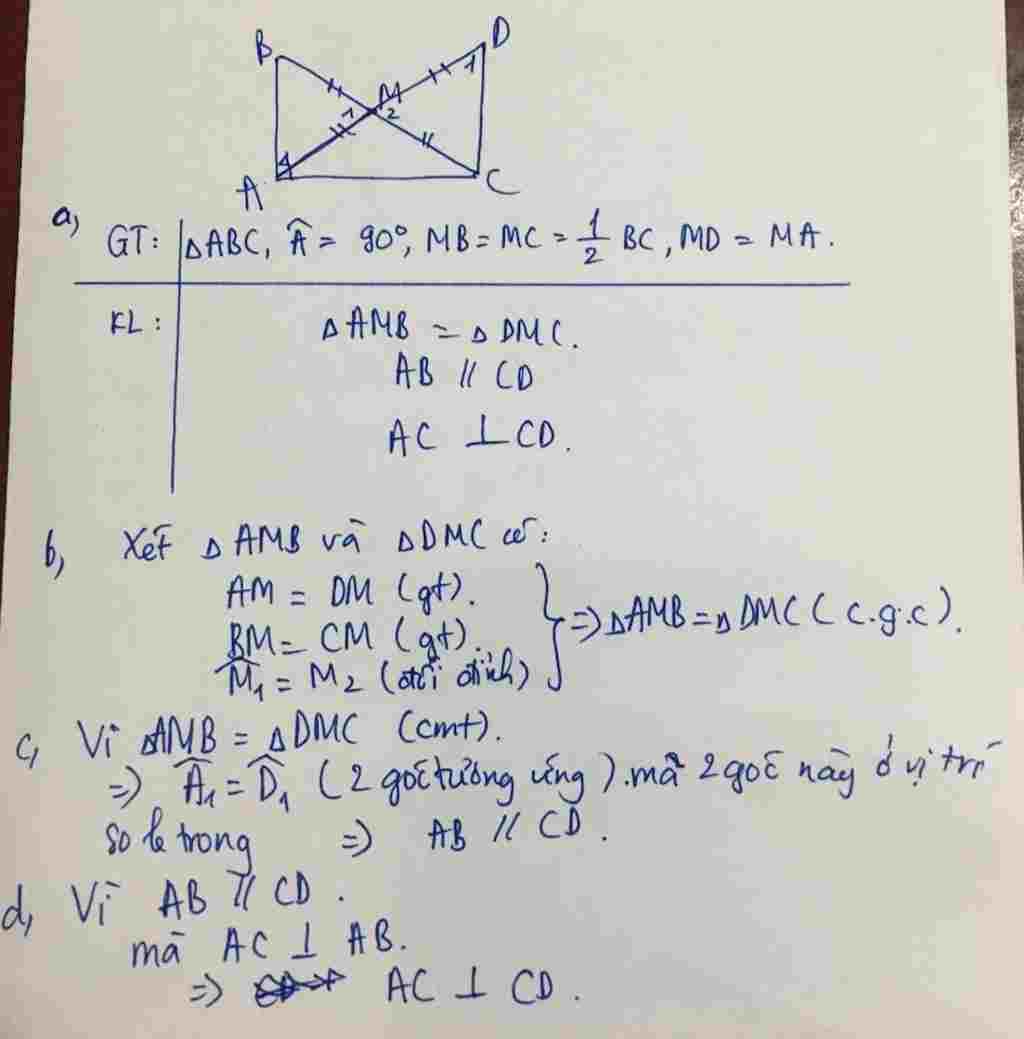 B
D
M
1
1 2
A
C
a, GT: ΔABC, Â = 90°, MB = MC = 1/2 BC, MD = MA.
KL: ΔAMB = ΔDMC.
AB // CD
AC ⊥ CD.
b, Xét ΔAMB và ΔDMC có:
AM = DM (gt).
BM = CM (gt). } => ΔAMB = ΔDMC (c.g.c).
M̂₁ = M₂ (đối đỉnh)
c, Vì ΔAMB = ΔDMC (cmt).
=> Â₁ = D̂₁ (2 góc tương ứng). mà 2 góc này ở vị trí
so le trong => AB // CD.
d, Vì AB // CD.
mà AC ⊥ AB.
=> AC ⊥ CD.